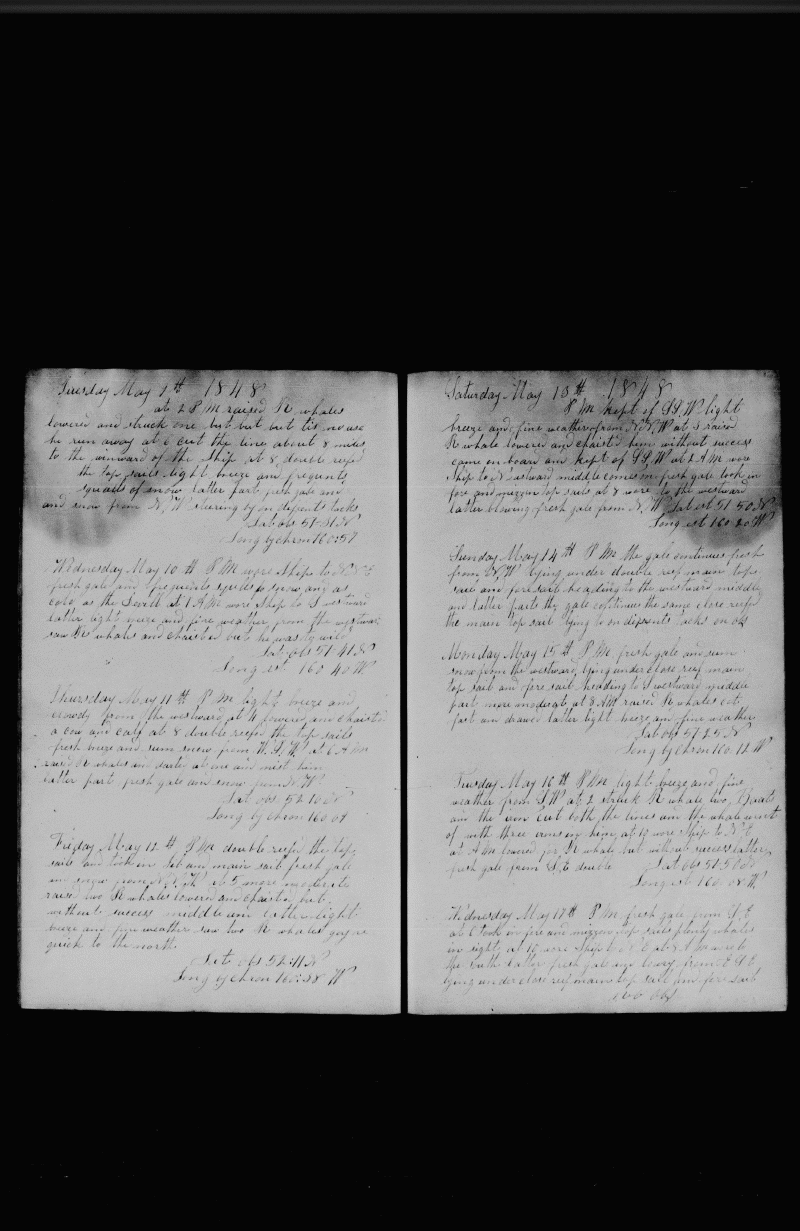 Tuesday May 9th 1848
at 2 P M raised R whales
lowered and struck one but but but tis no use
he run away at 6 cut the line about 8 miles
to the winward of the Ship at 8 double reef
the top sails light breeze and frequents
squalls of snow latter part fresh gale and
and snow from N, W steering by on difrents tacks
Lat obs 51-31 N
Long by chron 160:57
Wednesday May 10th P M wore Ship to N N E
fresh gale and frequents squalls snow and as
cold as the Devill at 1 A M wore Ship to S westward
latter light breze and fine weather from the westward
saw R whales and chaised but he was ty wild
Lat obs 51 41 N
Long est 160 40 W
Thursday May 11th P M light breeze and
clowdy from the westward at 4 lowered and chaised
a cow and calf at 8 double reefd the top sails
fresh breeze and sum snow from W. S, W at 6 A M
raised R whales am darted at one am mist him
latter part fresh gale and snow from N W
Lat obs 52 10 N
Long by chron 160 04
Friday May 12th P M double reefd the top
sails am took in jib am main sail fresh gale
am snow from N N W at 5 more moderate
raised two R whales lowered am chaised but
without success middle am latter light
breeze and fine weather saw two R whales going
quick to the north
Lat obs 52:11 N
Long by chron 160:38 W
Saturday May 13th 1848
P M kept of SS, W light
breeze and fine weather from N N, W at 5 raised
R whale lowered and chaised him without success
came on board am kept of SS, W at 2 A M wore
Ship to N eastward middle comes on fresh gale took in
fore and mizzon top sails at 8 wore to the westward
latter blowing fresh gale from N, W Lat est 51 50 N
Long est 160 20 W
Sunday May 14th P M the gale continues fresh
from N, W lying under double reef main top
sail and fore sail heading to the westward middle
and latter parts the gale continues the same close reefed
the main top sail lying to on difrents tacks no obs
Monday May 15th P M fresh gale and sum
snow from the westward, lying under close reef main
top sail and fore sail heading to S westward middle
part more moderate at 3 A M raised R whales cut
fast am drawed latter light breeze am fine weather
Lat obs 51 25 N
Long by Chron 160. 12 W
Tuesday May 16th P M light breeze and fine
weather from S, W at 2 struck R whale two Boats
am the iron cut both the lines am the whale went
of with three irons in him, at 10 wore Ship to N, E
at A M lowered for R whale but without success latter
fresh gale from S, E double Lat obs 51. 50 N
Long est 160. 08 W
Wednesday May 17th P M fresh gale from S, E
at 6 took in fore and mizzon top sails plenty whales
in sight, at 10 wore Ship to N E at 8 A M wore to
the South latter fresh gale and foggy from E S E
lying under close reef main top sail am fore sail
no obs